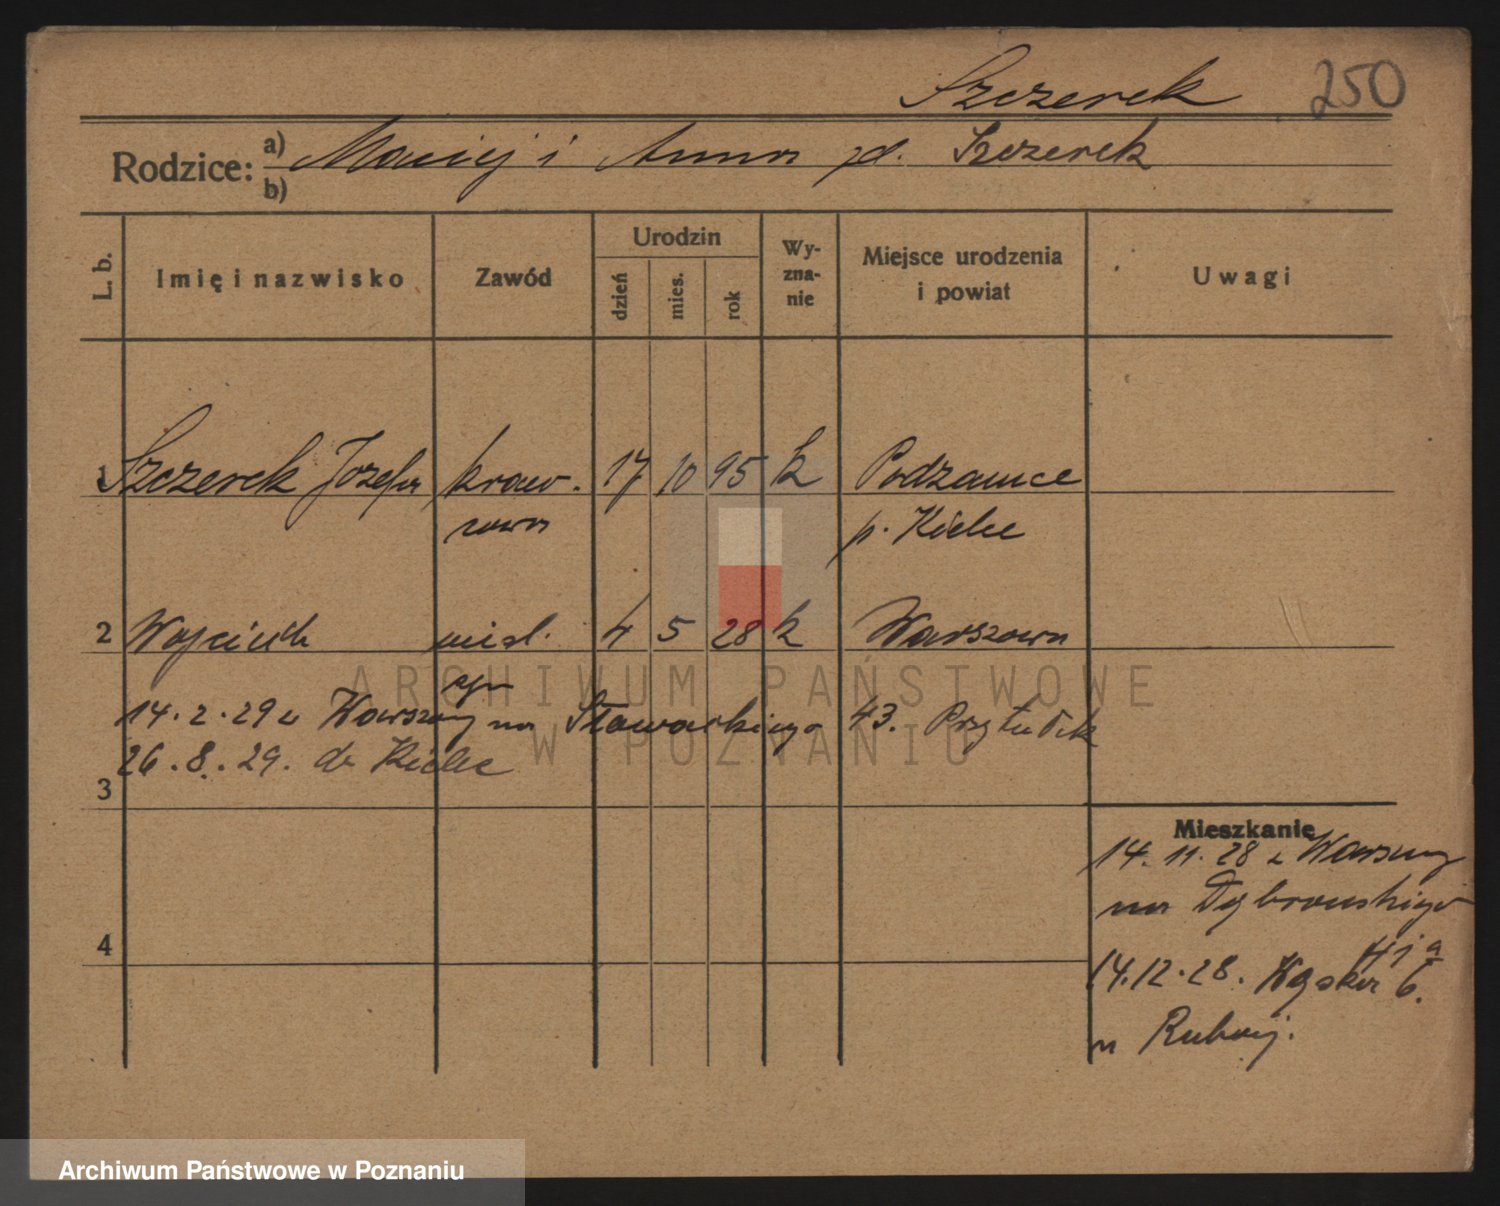 Szczerek 250
Rodzice: a) Maciej i Anna zd. Szczerek
b)
L. b. Imię i nazwisko Zawód Urodzin dzień mies. rok Wy-zna-nie Miejsce urodzenia i powiat Uwagi
1 Szczerek Józefa kraw- 17 10 95 k Podzamce
cowa p. Kielce
2 Wojciech 4 5 28 k Warszawa
syn
14.2.29 z Warszawy na Słowackiego 43.
26.8.29. do Kielc
3
Mieszkanie
14.11.28 z Warszawy
na Dąbrowskiego
4
14.12.28. Wąska 6.
u
ARCHIWUM PAŃSTWOWE
W POZNANIU
Archiwum Państwowe w Poznaniu